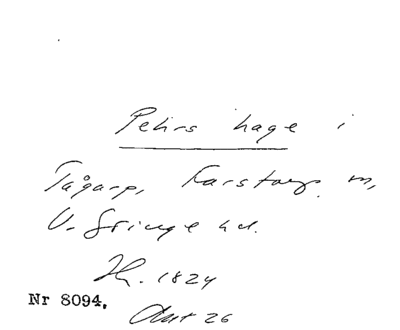 Petirs hage i
Tågarp, Karstorp m,
V. Gringe hd.
1824
Nr 8094.
Akt 26